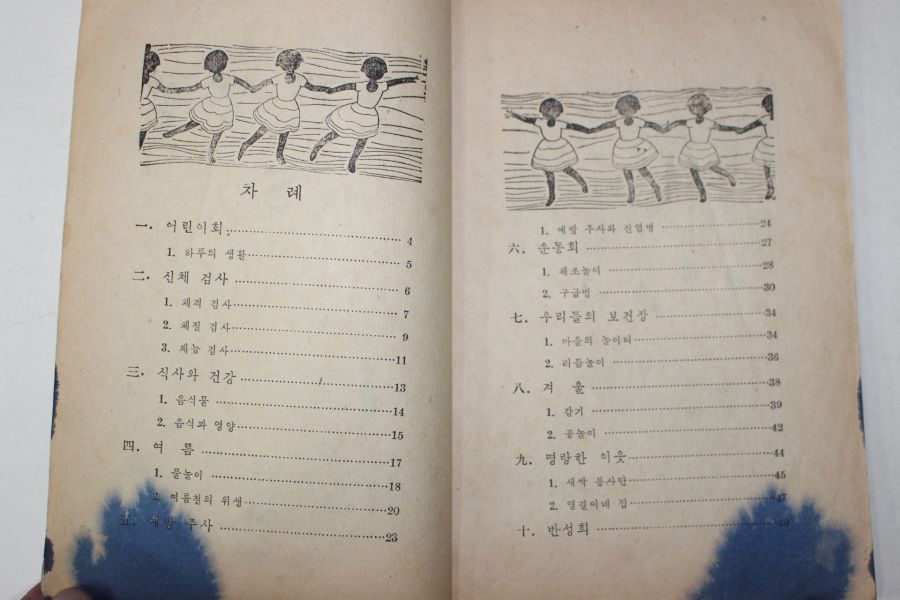 차 례
一. 어린이회 4
1. 하루의 생활 5
二. 신체 검사 6
1. 체격 검사 7
2. 체질 검사 9
3. 체능 검사 11
三. 식사와 건강 13
1. 음식물 14
2. 음식과 영양 15
四. 여 름 17
1. 물놀이 18
2. 여름철의 위생 20
五. 예방 주사 23
1. 예방 주사와 전염병 24
六. 운동회 27
1. 체조놀이 28
2. 구급법 30
七. 우리들의 보건장 34
1. 마을의 놀이터 34
2. 리듬놀이 36
八. 겨 울 38
1. 감기 39
2. 공놀이 42
九. 명랑한 이웃 44
1. 새싹 봉사단 45
2. 영길이네 집 47
十. 반성회